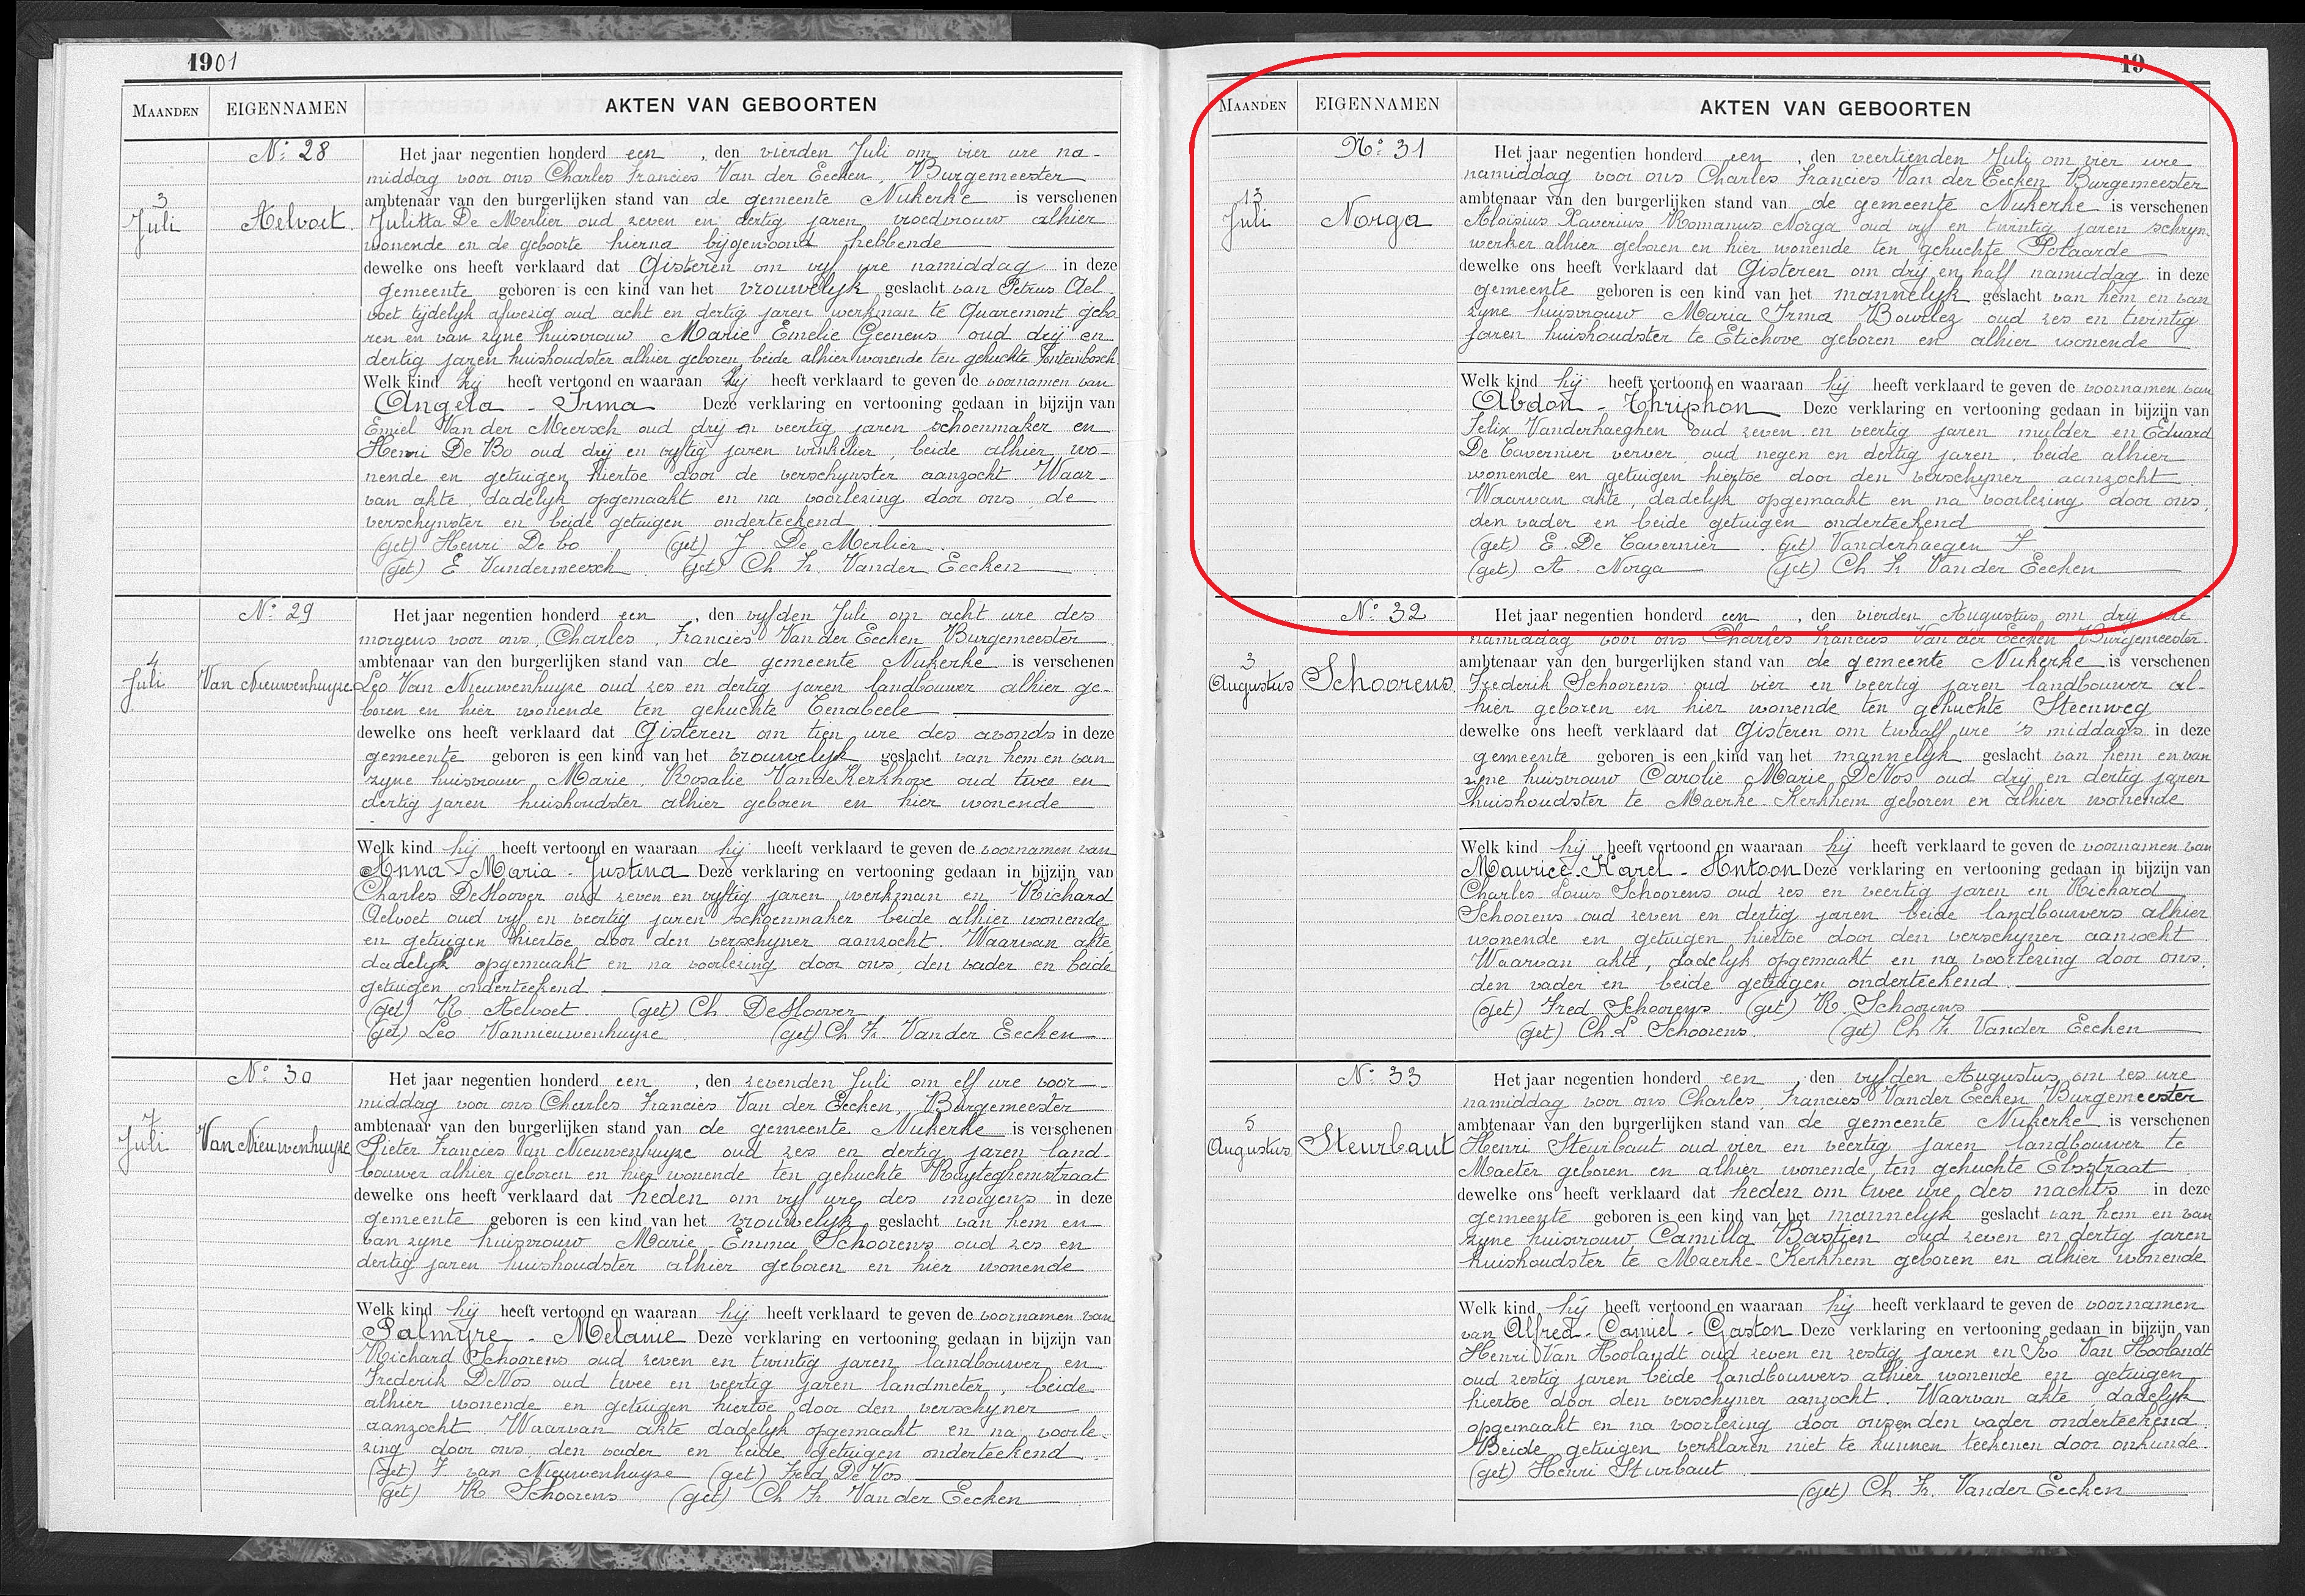 1901
MAANDEN EIGENNAMEN AKTEN VAN GEBOORTEN
Nº 28
3
Juli
Aelvoet
Het jaar negentien honderd een, den vierden Juli om vier ure na-
middag voor ons Charles Francies Van der Eecken, Burgemeester
ambtenaar van den burgerlijken stand van de gemeente Nukerke is verschenen
Julitta De Merlier oud zeven en dertig jaren vroedvrouw alhier
wonende en de geboorte hierna bijgewoond hebbende
dewelke ons heeft verklaard dat Gisteren om vyf ure namiddag in deze
gemeente geboren is een kind van het vrouwelyk geslacht van Petrus Ael-
voet tijdelyk afwezig oud acht en dertig jaren werkman te Quaremont gebo
ren en van zyne huisvrouw Marie Emelie Geenens oud drij en
dertig jaren huishoudster alhier geboren, beide alhier wonende ten gehuchte Fonteinbosch
Welk kind zij heeft vertoond en waaraan zij heeft verklaard te geven de voornamen van
Angela - Irma Deze verklaring en vertooning gedaan in bijzijn van
Emiel Van der Meersch oud drij en veertig jaren schoenmaker en
Henri De Bo oud drij en vyftig jaren winkelier, beide alhier wo-
nende en getuigen hiertoe door de verschynster aanzocht. Waar-
van akte, dadelyk opgemaakt en na voorlezing door ons, de
verschynster en beide getuigen onderteekend
(get) Henri De bo (get) J. De Merlier
(get) E Vandermeersch (get) Ch Fr. Vander Eecken
Nº 29
4
Juli
Van Nieuwenhuyze
Het jaar negentien honderd een, den vyfden Juli om acht ure des
morgens voor ons, Charles, Francies Van der Eecken Burgemeester
ambtenaar van den burgerlijken stand van de gemeente Nukerke is verschenen
Leo Van Nieuwenhuyze oud zes en dertig jaren landbouwer alhier ge-
boren en hier wonende ten gehuchte Tenabeele
dewelke ons heeft verklaard dat Gisteren om tien ure des avonds in deze
gemeente geboren is een kind van het vrouwelyk geslacht van hem en van
zyne huisvrouw Marie, Rosalie VandeKerkhove oud twee en
dertig jaren huishoudster alhier geboren en hier wonende
Welk kind hij heeft vertoond en waaraan hij heeft verklaard te geven de voornamen van
Anna - Maria - Justina Deze verklaring en vertooning gedaan in bijzijn van
Charles DeHoover oud zeven en vyftig jaren werkman en Richard
Aelvoet oud vyf en veertig jaren schoenmaker beide alhier wonende
en getuigen hiertoe door den verschyner aanzocht. Waarvan akte
dadelyk opgemaakt en na voorlezing door ons, den vader en beide
getuigen onderteekend
(get) R Aelvoet. (get) Ch. DeHoover
(get) Leo Vannieuwenhuyze (get) Ch Fr. Vander Eecken
Nº 30
7
Juli
Van Nieuwenhuyze
Het jaar negentien honderd een, den zevenden Juli om elf ure voor-
middag voor ons Charles, Francies Van der Eecken, Burgemeester
ambtenaar van den burgerlijken stand van de gemeente Nukerke is verschenen
Pieter Francies Van Nieuwenhuyze oud zes en dertig jaren land-
bouwer alhier geboren en hier wonende ten gehuchte Ruyteghemstraat
dewelke ons heeft verklaard dat heden om vyf ure des morgens in deze
gemeente geboren is een kind van het vrouwelyk geslacht van hem en
van zyne huisvrouw Marie - Emma Schoorens oud zes en
dertig jaren huishoudster alhier geboren en hier wonende
Welk kind hij heeft vertoond en waaraan hij heeft verklaard te geven de voornamen van
Palmyre - Melanie Deze verklaring en vertooning gedaan in bijzijn van
Richard Schoorens oud zeven en twintig jaren landbouwer en
Frederik DeVos oud twee en veertig jaren landmeter, beide
alhier wonende en getuigen hiertoe door den verschyner
aanzocht. Waarvan akte dadelyk opgemaakt en na voorle-
zing door ons, den vader en beide getuigen onderteekend
(get) F van Nieuwenhuyze (get) Fred De Vos
(get) R Schoorens (get) Ch Fr. Vander Eecken
19
MAANDEN EIGENNAMEN AKTEN VAN GEBOORTEN
Nº 31
13
Juli
Norga
Het jaar negentien honderd een, den veertienden Juli om vier ure
namiddag voor ons Charles Francies Van der Eecken Burgemeester
ambtenaar van den burgerlijken stand van de gemeente Nukerke is verschenen
Aloisius Xaverius Romanus Norga oud vyf en twintig jaren schryn-
werker alhier geboren en hier wonende ten gehuchte Potaarde
dewelke ons heeft verklaard dat Gisteren om drij en half namiddag in deze
gemeente geboren is een kind van het mannelyk geslacht van hem en van
zyne huisvrouw Maria Irma Bourlez oud zes en twintig
jaren huishoudster te Etichove geboren en alhier wonende
Welk kind hij heeft vertoond en waaraan hij heeft verklaard te geven de voornamen van
Abdon - Thriphon Deze verklaring en vertooning gedaan in bijzijn van
Felix Vanderhaeghen oud zeven en veertig jaren mulder en Eduard
De Tavernier verver oud negen en dertig jaren, beide alhier
wonende en getuigen hiertoe door den verschyner aanzocht
Waarvan akte, dadelyk opgemaakt en na voorlezing door ons,
den vader en beide getuigen onderteekend
(get) E. De Tavernier (get) Vanderhaegen F
(get) A. Norga (get) Ch Fr Van der Eecken
Nº 32
3
Augustus
Schoorens
Het jaar negentien honderd een, den vierden Augustus om drij ure
namiddag voor ons Charles Francies Van der Eecken Burgemeester
ambtenaar van den burgerlijken stand van de gemeente Nukerke is verschenen
Frederik Schoorens oud vier en veertig jaren landbouwer al-
hier geboren en hier wonende ten gehuchte Steenweg
dewelke ons heeft verklaard dat Gisteren om twaalf ure 's middags in deze
gemeente geboren is een kind van het mannelyk geslacht van hem en van
zyne huisvrouw Carolie Marie DeVos oud drij en dertig jaren
huishoudster te Maerke-Kerkhem geboren en alhier wonende
Welk kind hij heeft vertoond en waaraan hij heeft verklaard te geven de voornamen van
Maurice - Karel - Antoon Deze verklaring en vertooning gedaan in bijzijn van
Charles Louis Schoorens oud zes en veertig jaren en Richard
Schoorens oud zeven en dertig jaren beide landbouwers alhier
wonende en getuigen hiertoe door den verschyner aanzocht
Waarvan akte, dadelyk opgemaakt en na voorlezing door ons,
den vader en beide getuigen onderteekend.
(get) Fred Schoorens (get) R. Schoorens
(get) Ch. L. Schoorens (get) Ch Fr. Vander Eecken
Nº 33
5
Augustus
Steurbaut
Het jaar negentien honderd een, den vyfden Augustus om zes ure
namiddag voor ons Charles, Francies Vander Eecken Burgemeester
ambtenaar van den burgerlijken stand van de gemeente Nukerke is verschenen
Henri Steurbaut oud vier en veertig jaren landbouwer te
Maeter geboren en alhier wonende ten gehuchte Ebsstraat
dewelke ons heeft verklaard dat heden om twee ure des nachts in deze
gemeente geboren is een kind van het mannelyk geslacht van hem en van
zyne huisvrouw Camilla Bastien oud zeven en dertig jaren
huishoudster te Maerke-Kerkhem geboren en alhier wonende
Welk kind hij heeft vertoond en waaraan hij heeft verklaard te geven de voornamen
van Alfred - Camiel - Gaston Deze verklaring en vertooning gedaan in bijzijn van
Henri Van Hoolandt oud zeven en zestig jaren en Ivo Van Hoolandt
oud zestig jaren beide landbouwers alhier wonende en getuigen
hiertoe door den verschyner aanzocht. Waarvan akte, dadelyk
opgemaakt en na voorlezing door ons en den vader onderteekend.
Beide getuigen verklaren niet te kunnen teekenen door onkunde.
(get) Henri Sturbaut
(get) Ch. Fr. Vander Eecken